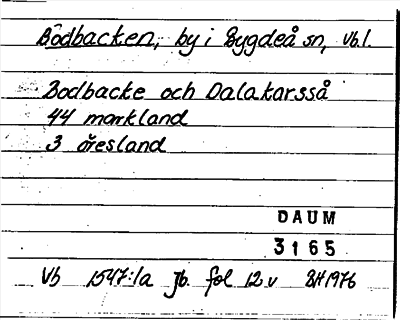 Bodbacken, by i Bygdeå sn, Vb.l.
Bodbacke och Dalakarsså
44 markland
3 öresland
DAUM
3165
Vb 1547:1a Jb. fol 12.v BH 1976